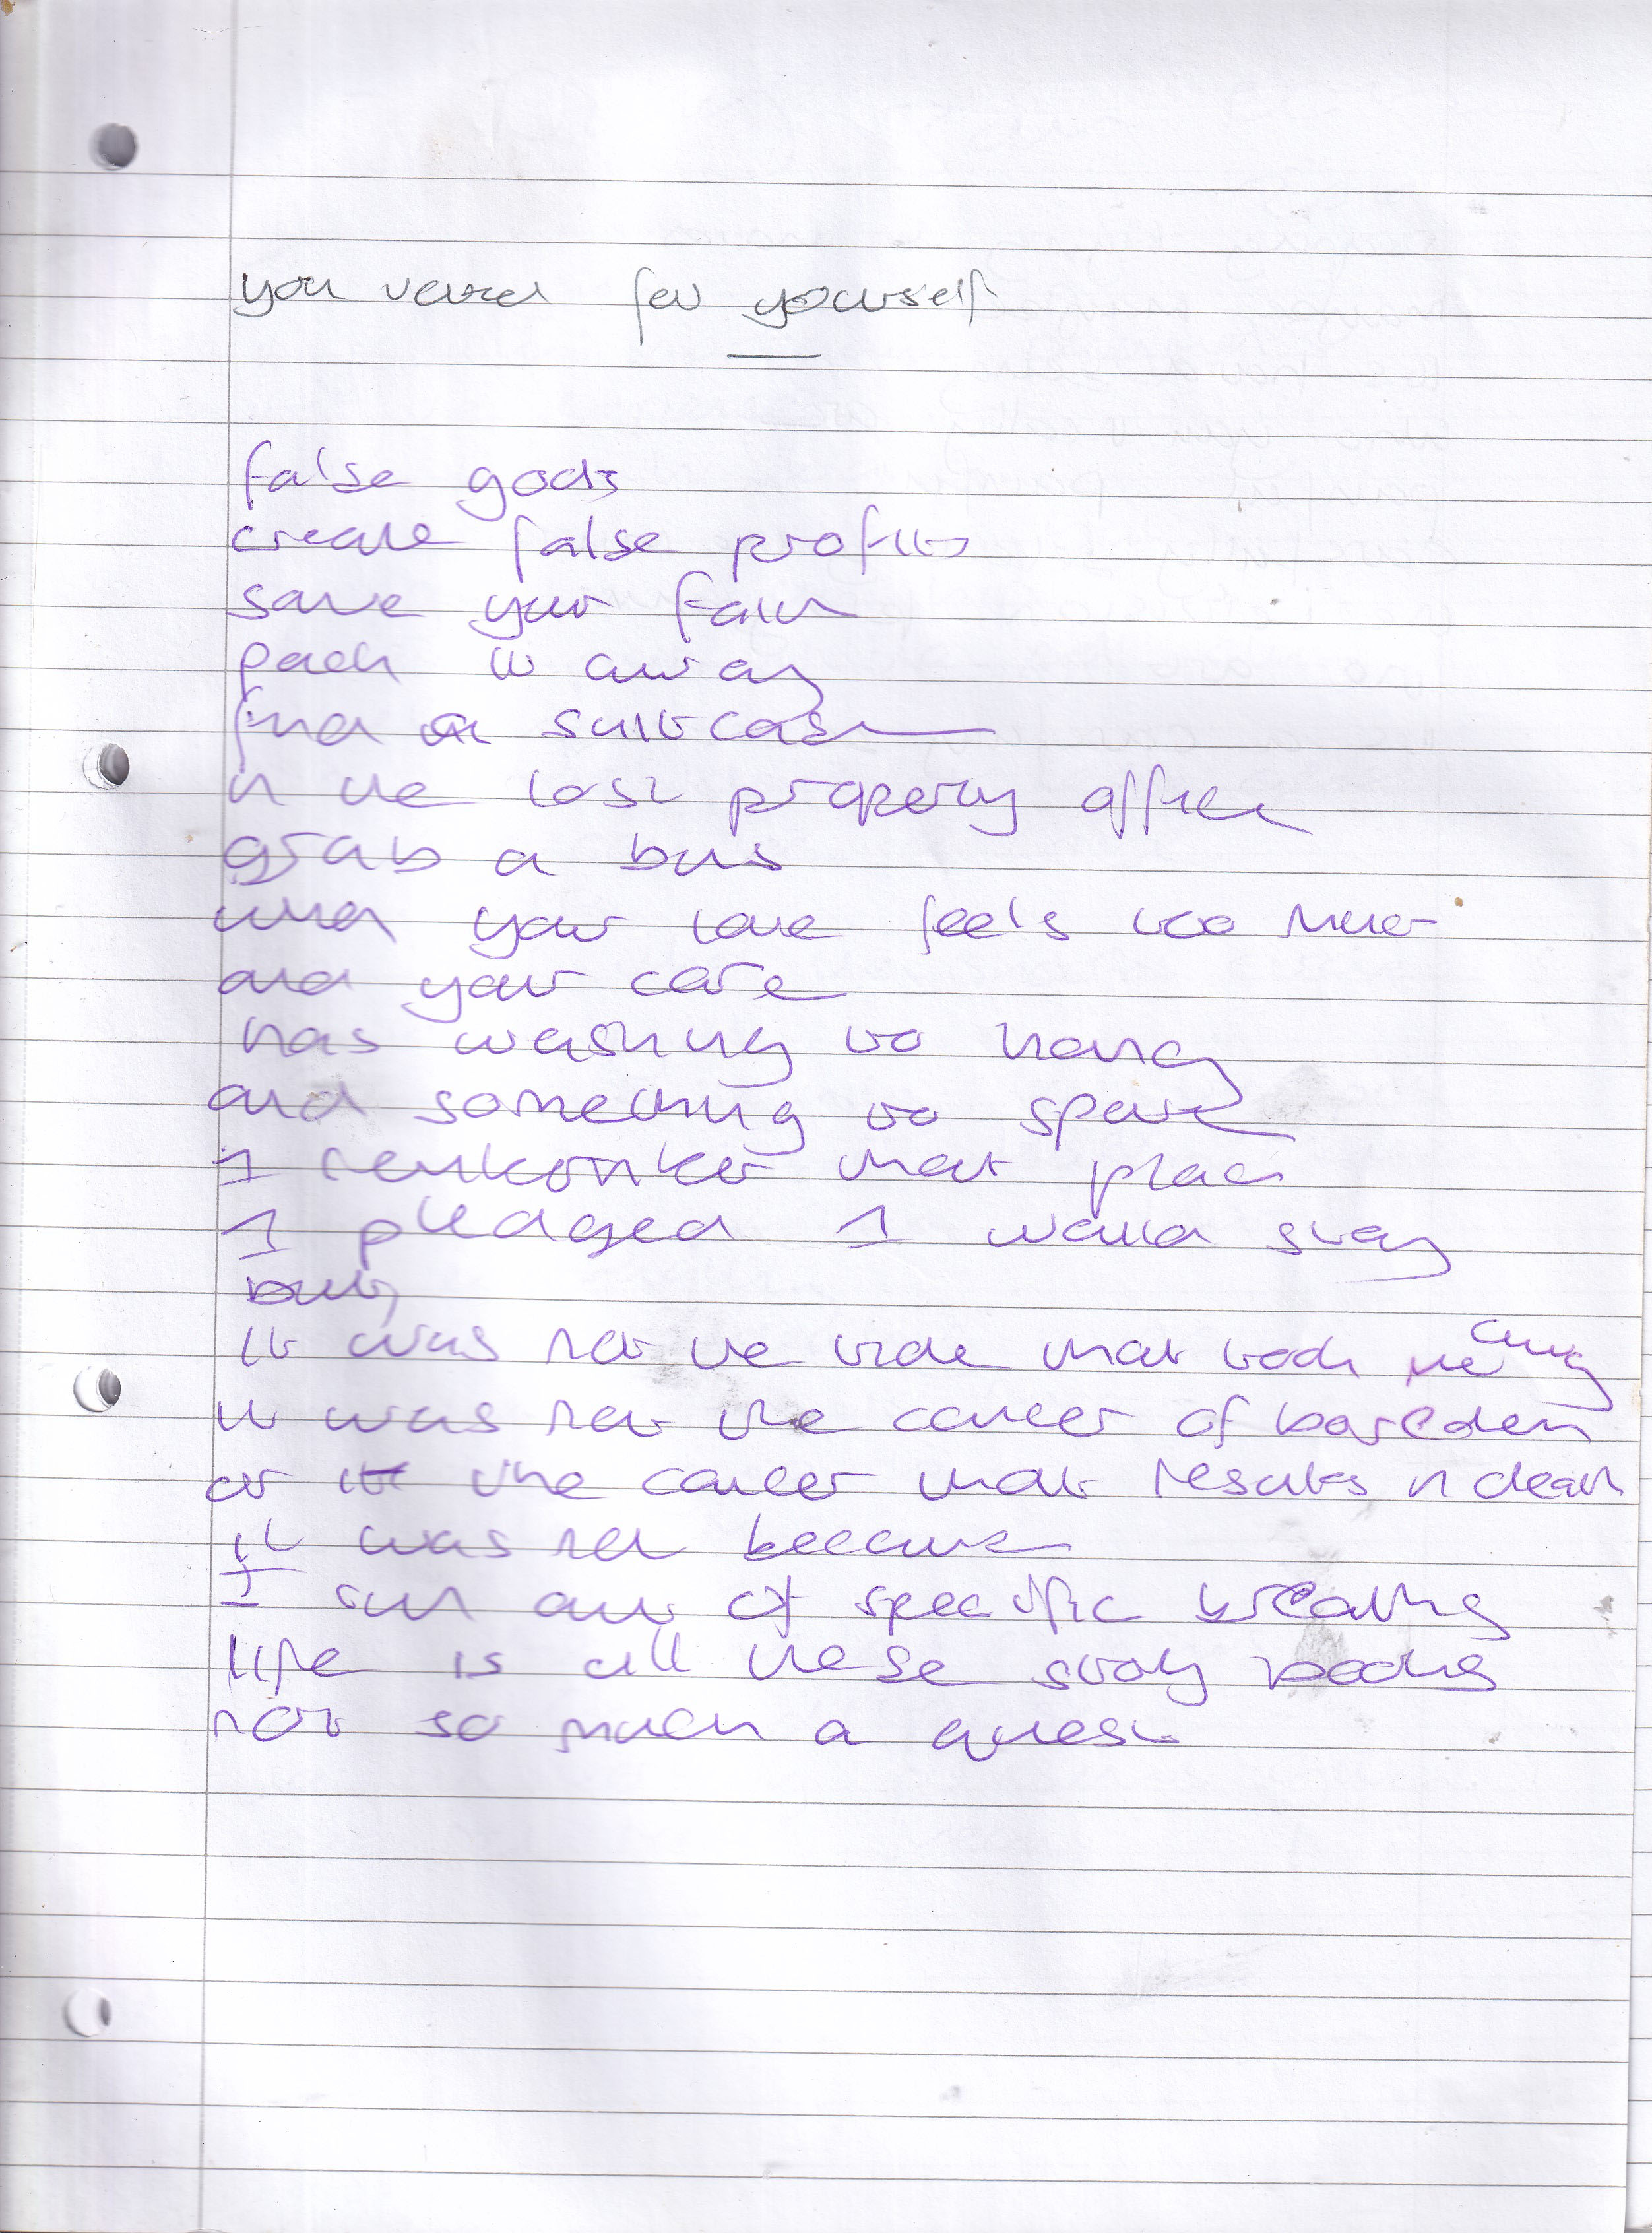 you          for yourself
false gods
create false profits
save your faith
pack it away
find a suitcase
in the lost property office
grab a bus
when your love feels too much
and your care
has washing to hang
and something to spare
I remember that place
I pledged I would stay
but
it was not the tide that took me away
it was not the career of boredom
or the career that results in death
it was not because
I ran out of specific breathing
life is all these story books
not so much a quest